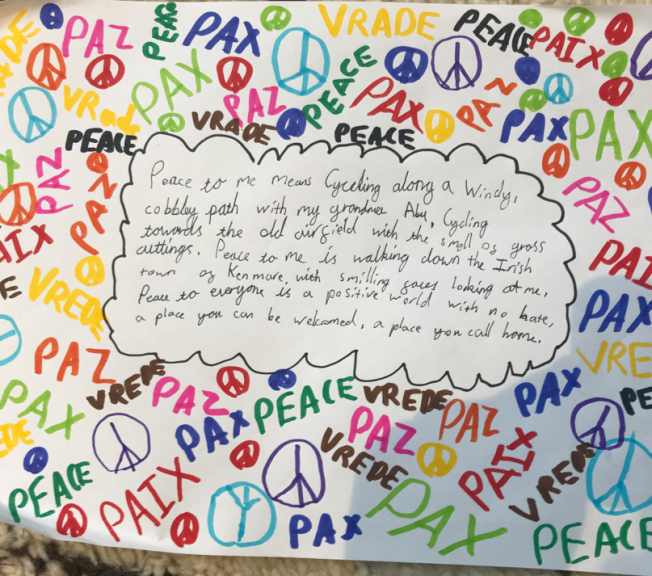 VRADE PEACE
PAZ PEACE PAX PAIX
VRADE PAX PAZ PEACE PAX PAZ PAX PAX
PEACE VRADE PEACE
PAZ PAZ PAZ
Peace to me means Cyceling along a Windy,
cobbley path with my grandma, Abu, Cycling
towards the old airfield with the smell of grass
cuttings. Peace to me is walking down the Irish
town of Kenmare, with smilling faces looking at me,
Peace to everyone is a positive world with no hate,
a place you can be welcomed, a place you call home.
VREDE PAX
PAZ VREDE
PAX VREDE PAZ PEACE VREDE PAZ PAX
PAX PAZ PAIX
PEACE PAIX VREDE PAX VREDE
PAX PAX PEACE